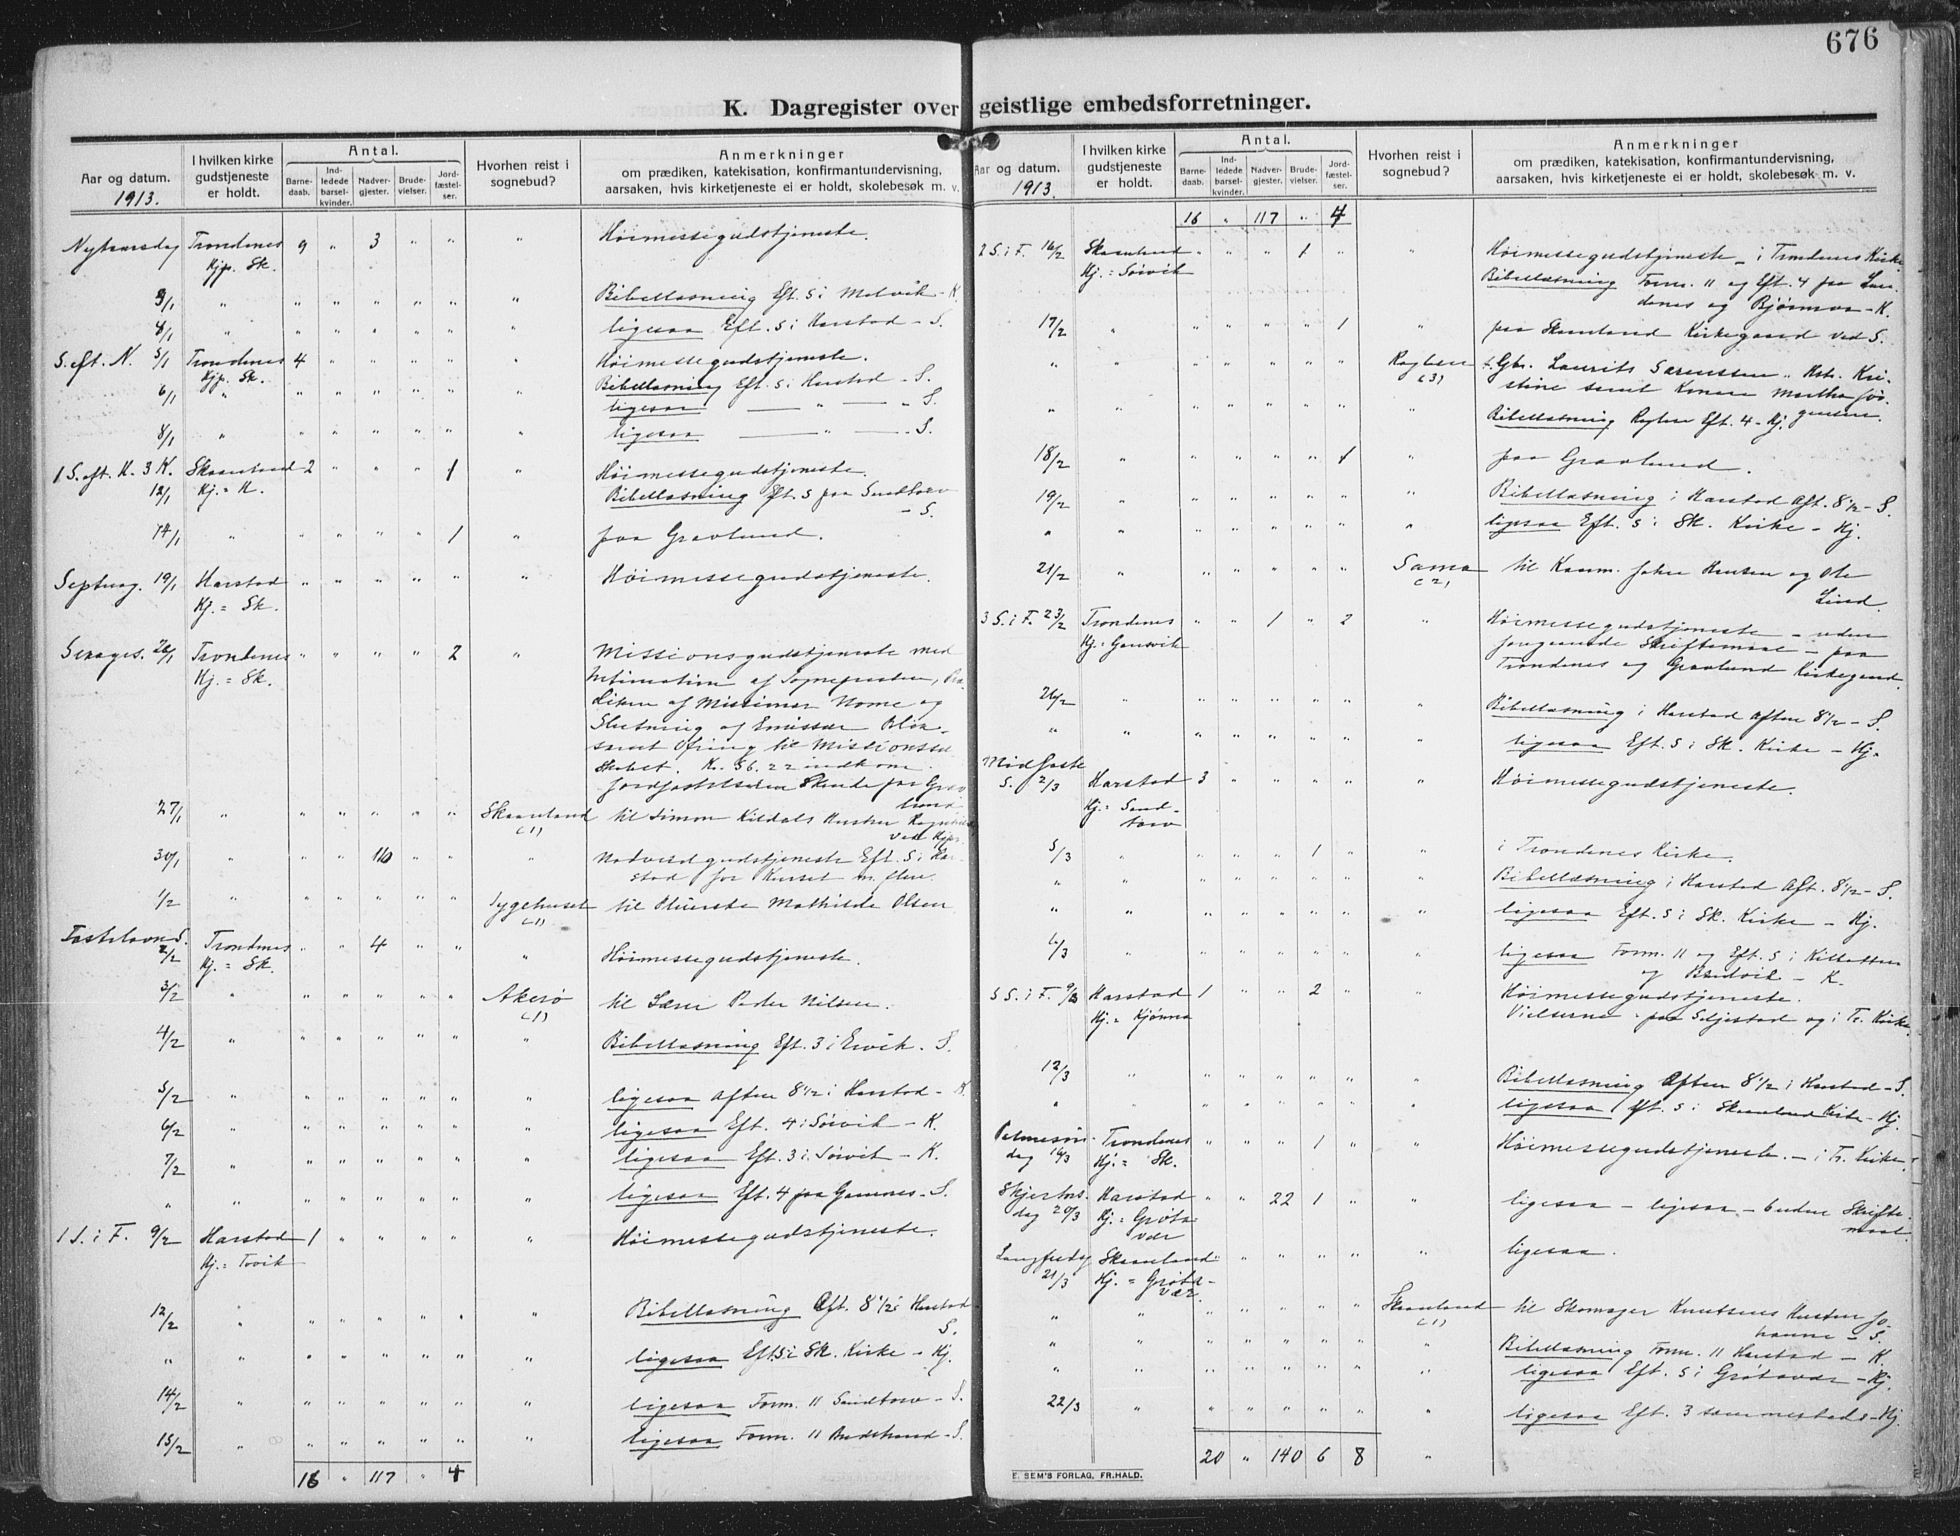 676
K. Dagregister over geistlige embedsforretninger.
Aar og datum. 1913. | I hvilken kirke gudstjeneste er holdt. | Antal. Barnedaab. | Indledede barselkvinder. | Nadvergjester. | Brudevielser. | Jordfæstelser. | Hvorhen reist i sognebud? | Anmerkninger om prædiken, katekisation, konfirmantundervisning, aarsaken, hvis kirketjeneste ei er holdt, skolebesøk m. v.
Nytaarsdag Trondenes 9 " 3 " " " Høimessegudstjeneste.
Kjp. Sk.
3/1 " " " " " " " Bibellæsning Eft. 5 i Melvik - K.
" " " " " " " ligesaa Eft. 5 i Harstad - S.
S. eft. N. 5/1 Trondenes 4 " " " " " Høimessegudstjeneste.
Kjp. Sk. Bibellæsning Eft. 5 i Harstad - S.
6/1 " " " " " " " ligesaa — " — " S.
8/1 " " " " " " " ligesaa — " — - S.
1 S. eft. H. 3 K. Skaanland 2 " " " 1 " Høimessegudstjeneste.
12/1 Kj. = K. Bibellæsning Eft. 5 paa Sandtorv
- S.
14/1 " " " " " 1 " paa Gravlund.
Septuag. 19/1 Harstad " " " " " " Høimessegudstjeneste.
Kj. = Sk.
Sexages. 26/1 Trondenes " " " " 2 " Missionsgudstjeneste med
Kj. = Sk. Intimation af Sognepræsten, Præ-
diken af Missionær Nome og
Slutning af Emissær
samt Ofring til Missionssel-
skabet. Kr. 56.22 indkom.
Jordfæstelserne skende paa Grav-
lund
27/1 " " " " " " Skaanland til Simon Kildals Hustru
(1) ved Kjp.
30/1 " " " 110 " " " Nadverdgudstjeneste Eft. 5 i Har-
stad for Kurset m. flere.
1/2 " " " " " " Sygehuset til Mathilde Olsen
(1)
Fastelavns S.
2/2 Trondenes " " 4 " " " Høimessegudstjeneste.
Kj. = Sk.
3/2 " " " " " " Akerø til Peder Nilsen.
(1)
4/2 " " " " " " " Bibellæsning Eft. 3 i Ervik - S.
5/2 " " " " " " " ligesaa Aften 8 1/2 i Harstad - K.
6/2 " " " " " " " ligesaa Eft. 4 i Sørvik - K.
7/2 " " " " " " " ligesaa Eft. 3 i Sørvik - K.
" " " " " " " " ligesaa Eft. 4 paa Gamnes - S.
1 S. i F. 9/2 Harstad 1 " " " " " Høimessegudstjeneste.
Kj. = Tovik
12/2 " " " " " " " Bibellæsning Aft. 8 1/2 i Harstad
S.
" " " " " " " " ligesaa Eft. 5 i Sk. Kirke - Kj.
14/2 " " " " " " " ligesaa Form. 11 Sandtorv - S.
15/2 " " " " " " " ligesaa Form. 11 - S.
16 " 117 " 4
Aar og datum. 1913. | I hvilken kirke gudstjeneste er holdt. | Antal. Barnedaab. | Indledede barselkvinder. | Nadvergjester. | Brudevielser. | Jordfæstelser. | Hvorhen reist i sognebud? | Anmerkninger om prædiken, katekisation, konfirmantundervisning, aarsaken, hvis kirketjeneste ei er holdt, skolebesøk m. v.
16 " 117 " 4
2 S. i F. 16/2 Skaanland " " " 1 " " Høimessegudstjeneste - i Trondenes Kirke
Kj. = Sørvik Bibellæsning Form. 11 og Eft. 4 paa
og - K.
17/2 " " " " " 1 " paa Skaanland Kirkegaard ved S.
" " " " " " " (3) Gbr. Laurits Sørensen Hstr. Kri-
stine samt Konen Martha Jør-
gensen.
" " " " " " " " Bibellæsning Eft. 4 - Kj.
18/2 " " " " " 1 " paa Gravlund.
19/2 " " " " " " " Bibellæsning i Harstad Aft. 8 1/2 - S.
" " " " " " " " ligesaa Eft. 5 i Sk. Kirke - Kj.
21/2 " " " " " " Sama til Johan Hansen og Ole
(2) Lind.
3 S. i F. 23/2 Trondenes " " 1 " 2 " Høimessegudstjeneste - uden
Kj. = Gausvik foregaaende Skriftemaal - paa
Trondenes og Gravlund Kirkegaard.
26/2 " " " " " " " Bibellæsning i Harstad Aften 8 1/2 - S.
" " " " " " " " ligesaa Eft. 5 i Sk. Kirke - Kj.
Midfaste
S. 2/3 Harstad 3 " " " " " Høimessegudstjeneste.
Kj. = Sand-
torv
5/3 " " " " 1 " " i Trondenes Kirke.
" " " " " " " Bibellæsning i Harstad Aft. 8 1/2 - S.
" " " " " " " " ligesaa Eft. 5 i Sk. Kirke - Kj.
6/3 " " " " " " " ligesaa Form. 11 og Eft. 5 i
og - K.
5 S. i F. 9/3 Harstad 1 " " 2 " " Høimessegudstjeneste.
Kj. = Kjønna Vielserne - paa Seljestad og i Tr. Kirke
12/3 " " " " " " " Bibellæsning Aften 8 1/2 i Harstad - S.
" " " " " " " ligesaa Eft. 5 i Skaanland Kirke - Kj.
Palmesøn- Trondenes " " " 1 " " Høimessegudstjeneste. - i Tr. Kirke.
dag 16/3 Kj. = Sk.
Skjærtors- Harstad " " 22 1 " " ligesaa - ligesaa - uden Skrifte-
dag 20/3 Kj. = Grøta- maal
vær
Langfredag Skaanland " " " " " " ligesaa.
21/3 Kj. = Grøta-
vær.
" " " " " " " Skaanland til Skomager Knutsens Hustru Jo-
(1) hanne - S.
" " " " " " " " Bibellæsning Form. 11 Harstad - K.
" " " " " " " ligesaa Eft. 5 i Grøtavær - Kj.
22/3 " " " " " " " ligesaa Eft. 3 - Kj.
20 " 140 6 8 "
E. SEM'S FORLAG, FR.HALD.